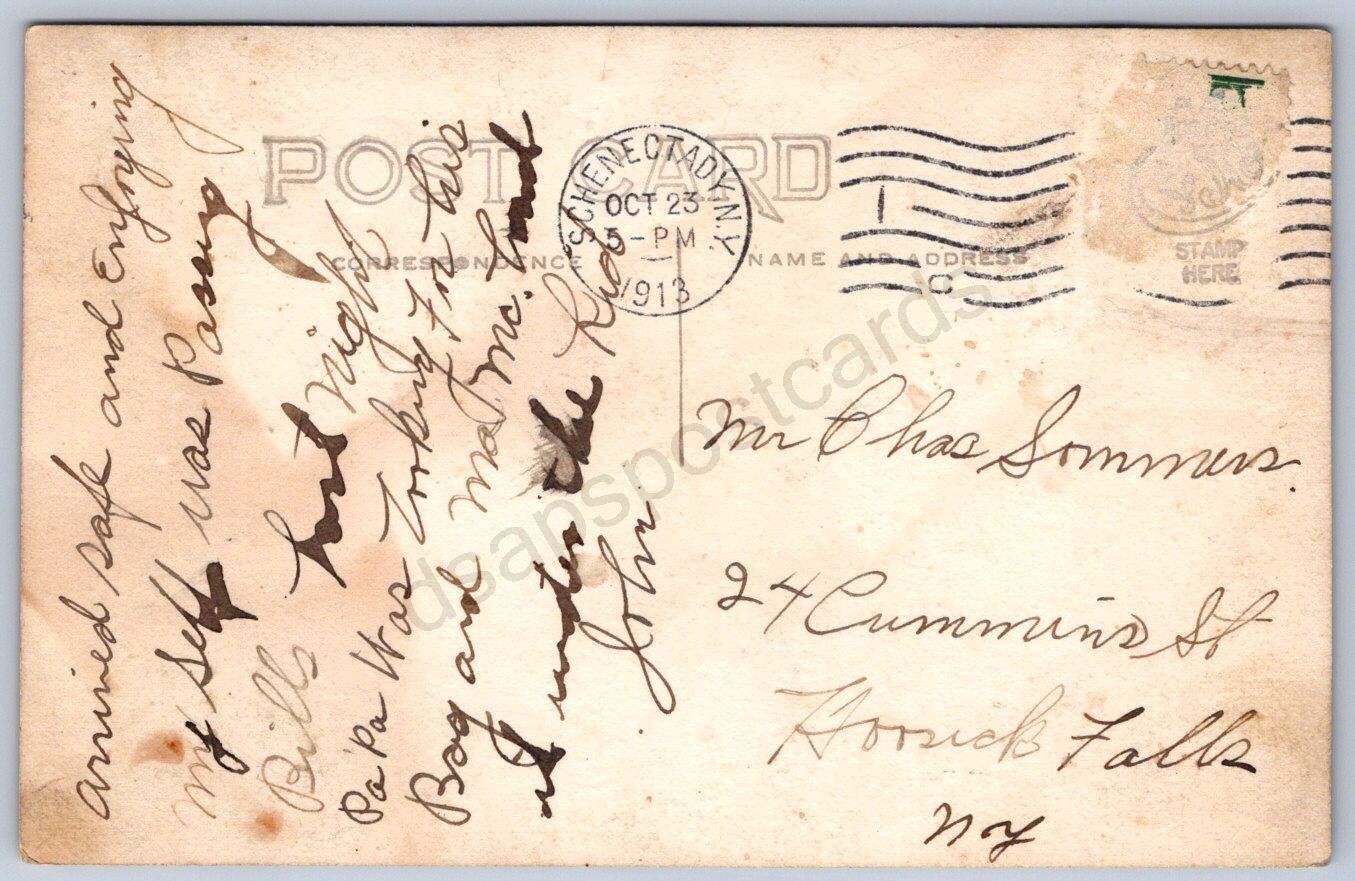 POST CARD
CORRESPONDENCE
NAME AND ADDRESS
STAMP
HERE
SCHENECTADY, N.Y.
OCT 23
5-PM
1913
arrived safe and Enjoying
my self was Passing
Bills last night
Pa Pa Was Looking For his
Bag and Ma Mc. had
it under the Lid
John
Mr Chas Sommers.
24 Cummins St
Hoosick Falls
N Y
dsapspostcards